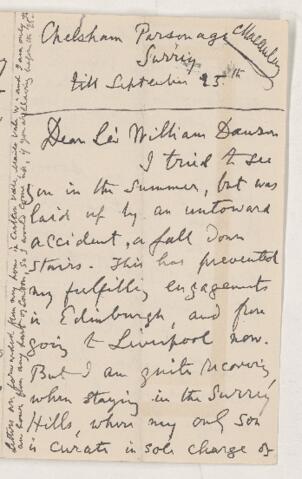 Chelsham Parsonage
Surrey
till September 25th
Dear Sir William Dawson
I tried to see
you in the summer, but was
laid up by an untoward
accident, a fall down
stairs. This has prevented
my fulfilling engagements
in Edinburgh, and from
going to Liverpool now.
But I am quite recovering
when staying in the Surrey
Hills, where my only son
is curate in sole charge of
letters are forwarded from my home in Carlton Vale, Maida Vale W. and I am only
an hour from any part of London, so I could come up, if you are leaving before the 25.